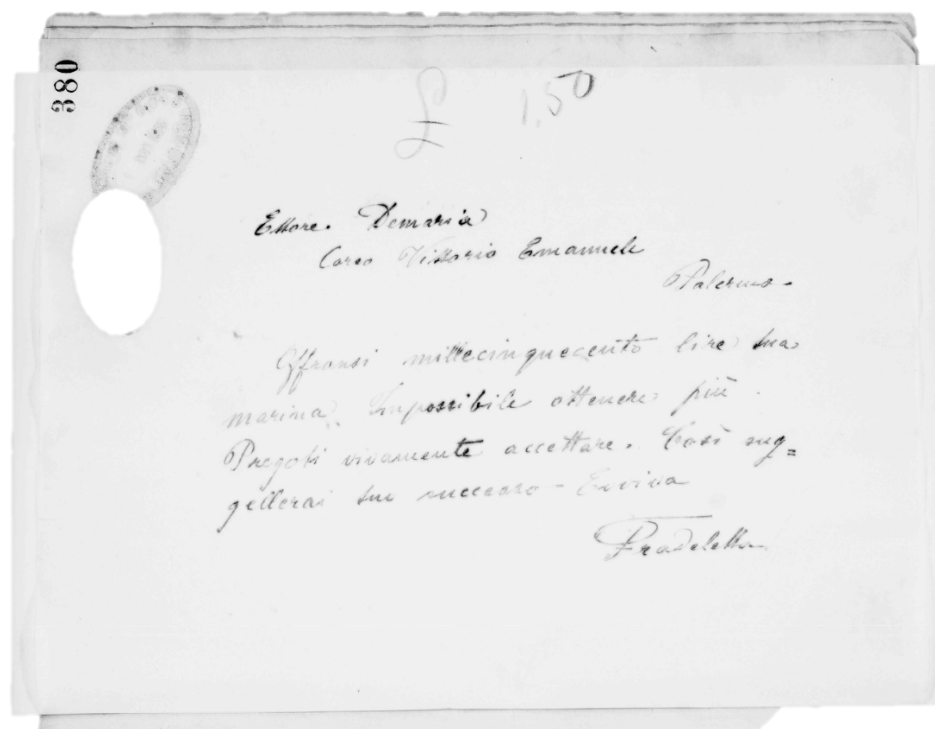 380
£ 1.50
Ettore Demaria
Corso Vittorio Emanuele
Palermo
Offronsi millecinquecento lire tua
marina. Impossibile ottenere più.
Pregoti vivamente accettare. Così sug=
gellerai tuo successo - Evviva
Fradeletto